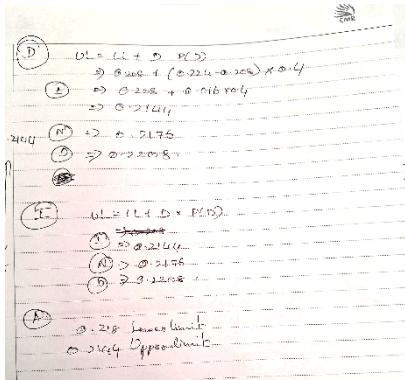 CMR
D UL = LL + D P(D)
⇒ 0.208 + (0.224 - 0.208) × 0.4
⇒ 0.208 + 0.016 × 0.4
⇒ 0.2144
N ⇒ 0.2176
D ⇒ 0.2208
UL = LL + D × P(D)
⇒ 0.2144
N ⇒ 0.2176
D ⇒ 0.2208
A
Lower limit
Upper limit